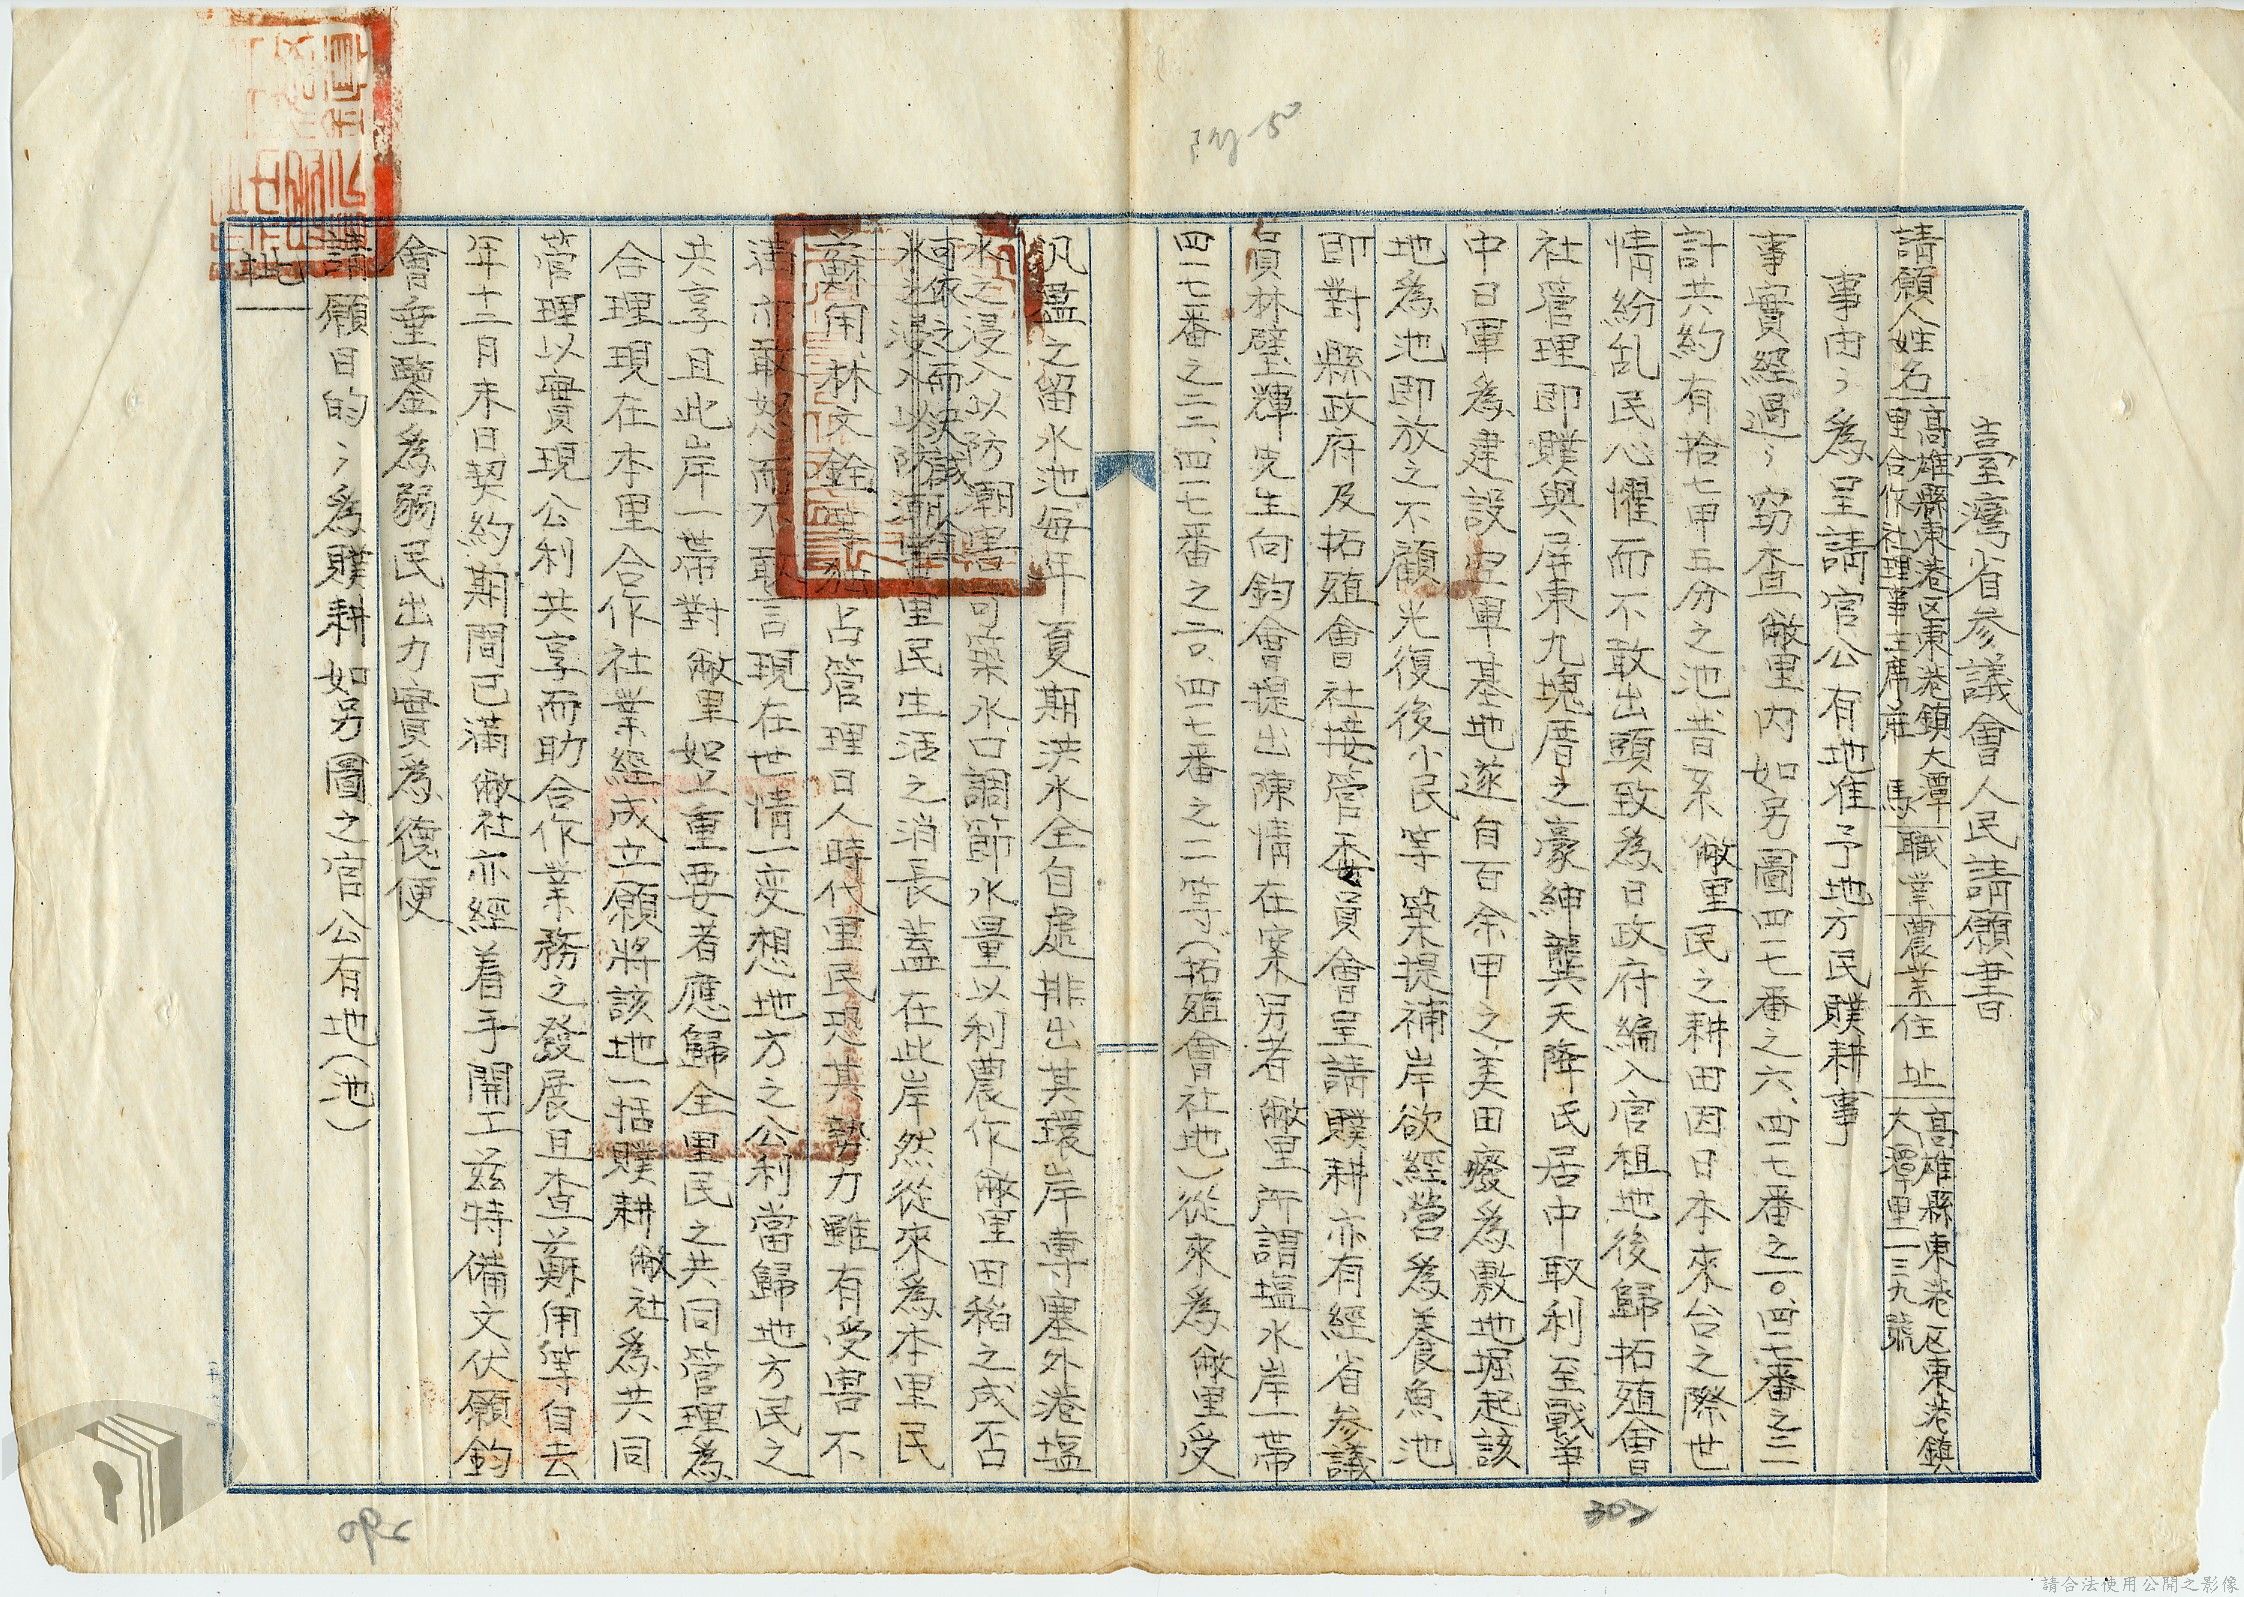 臺灣省參議會人民請願書
請願人姓名 高雄縣東港区東港鎮大潭里合作社理事主席 莊 馬 職業 農業 住址 高雄縣東港区東港鎮大潭里一三九號
事由：為呈請官公有地准予地方民贌耕事
事實經過：窃查敝里內如另圖四一七番之六、四一七番之一〇、四一七番之二
計共約有拾七甲五分之池、昔系敝里民之耕田因日本來台之際世
情紛乱民心懼而不敢出頭致為日政府編入官租地後歸拓殖會
社管理即贌與屏東九塊厝之豪紳龔天降氏居中取利至戰爭
中日軍為建設空軍基地遂自百余甲之美田癈為敷地堀起該
地為池即放之不顧光復後小民等築提補岸欲經營為養魚池
即對縣政府及拓殖會社接管委員會呈請贌耕亦有經省參議
員林壁輝先生向鈞會提出陳情在案另者敝里所謂塩水岸一帶
四一七番之三、四一七番之三〇、四一七番之二等(拓殖會社地)從來為敝里受
汎濫之留水池每年夏期洪水全自處排出其環岸専塞外港塩
水之浸入以防潮害可築水口調節水量以利農作敝里田稻之成否
可依之而決誠
水之浸水以防潮害里民生活之消長蓋在此岸然從來為本里民
蘇用、林文銓 占管理日人時代里民恐其勢力雖有受害不
滿亦敢怒而不敢言現在世情一変想地方之公利當歸地方民之
共享且此岸一帶對敝里如上重要者應歸全里民之共同管理為
合理現在本里合作社業經成立願將該地一括贌耕敝社為共同
管理以實現公利共享而助合作業務之發展且查蘇用等自去
年十二月末日契約期間已滿敝社亦經着手開工茲特備文伏願鈞
會垂鑒為弱民出力實為德便
請願目的：為贌耕如另圖之官公有地(池)
請合法使用公開之影像